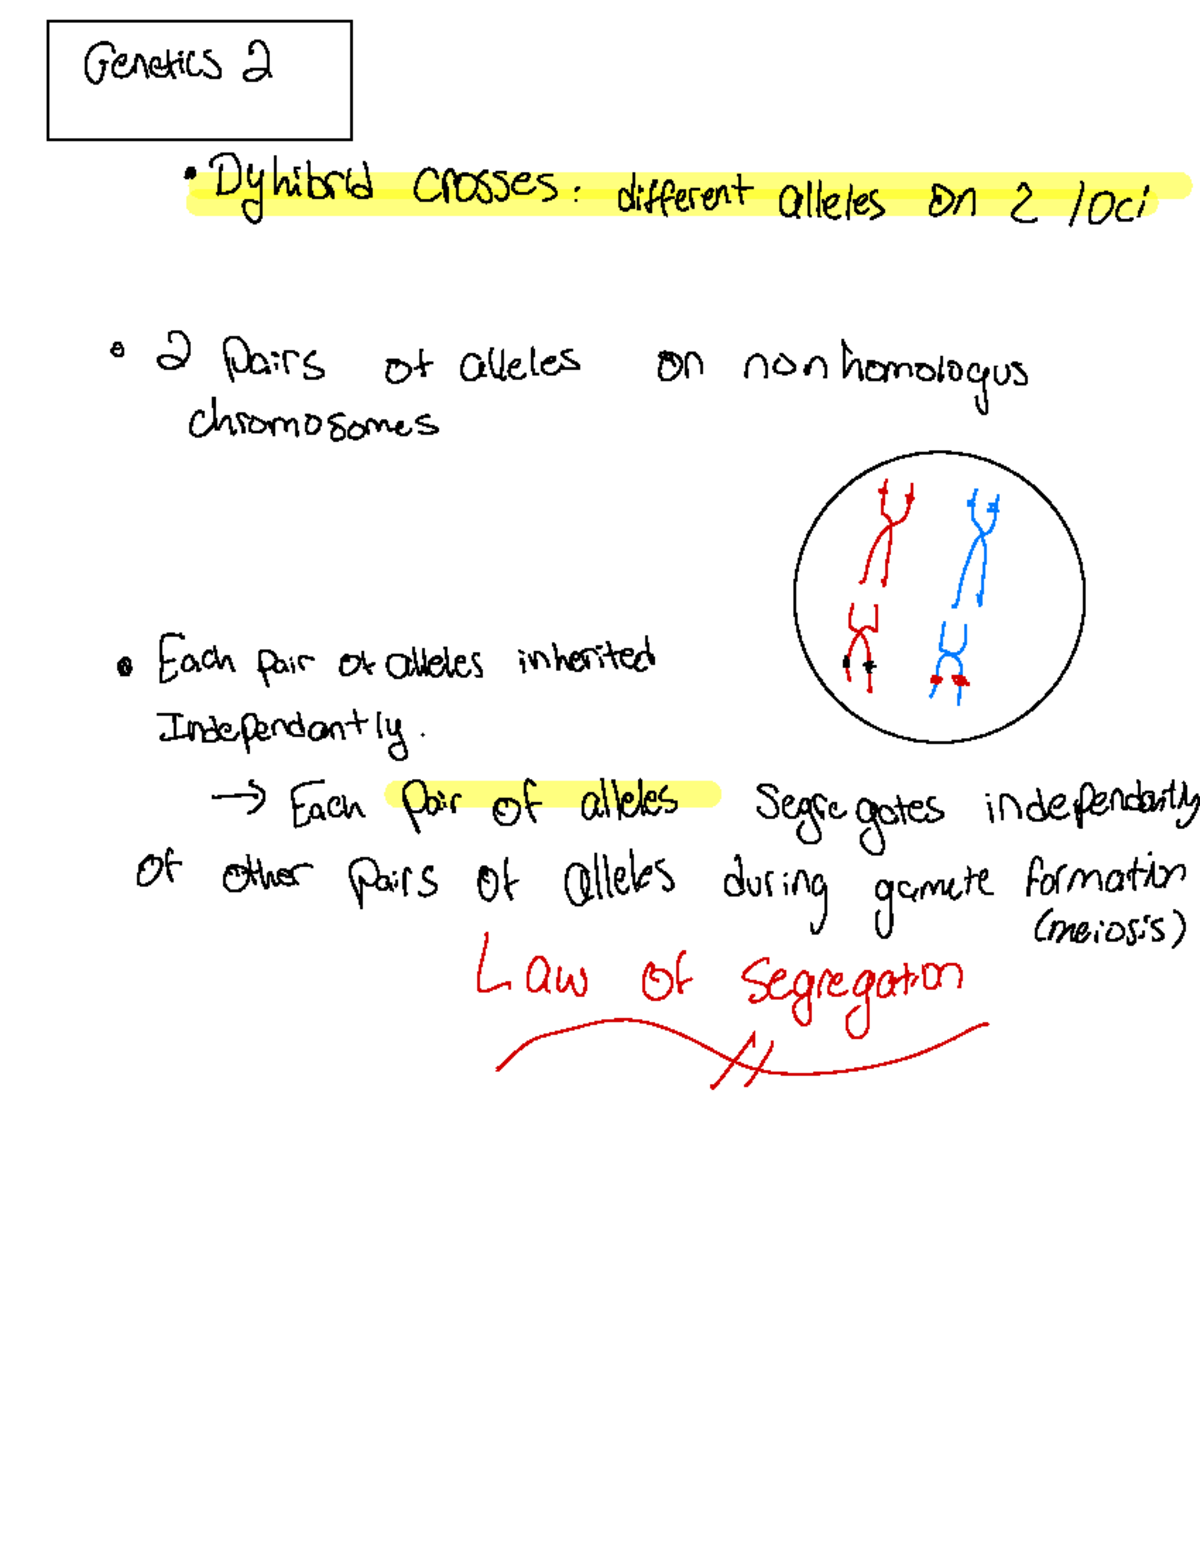 Genetics 2
• Dyhibrid crosses: different alleles on 2 loci
• 2 Pairs of alleles on nonhomologus
chromosomes
• Each pair of alleles inherited
Independantly.
→ Each pair of alleles segregates independantly
of other pairs of alleles during gamete formation
(meiosis)
Law of segregation